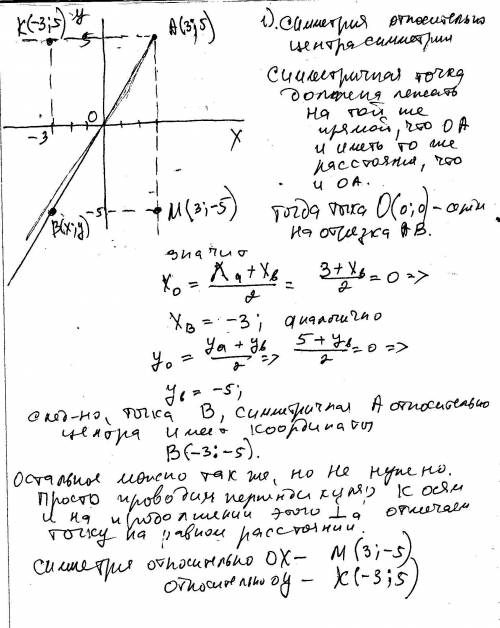 K(-3;5) y
5
A(3;5)
1). Симметрия относительно
центра симметрии
Симметричная точка
должна лежать
на той же
прямой, что OA
и иметь то же
расстояния, что
и OA.
O
-3
X
-5
M(3;-5)
B(x;y)
Тогда точка O(0;0) -
на отрезка AB.
значит
x₀ = (xₐ + x_в)/2 = (3 + x_в)/2 = 0 =>
x_в = -3; аналогично
y₀ = (yₐ + y_в)/2 => (5 + y_в)/2 = 0 =>
y_в = -5;
след-но, точка B, симметричная A относительно
центра имеет координаты
B(-3;-5).
Остальное можно так же, но не нужно.
Просто проводим перпендикуляр к осям
и на продолжении этого ⊥а отмечаем
точку на равном расстоянии.
Симметрия относительно OX - M(3;-5)
относительно OY - K(-3;5)